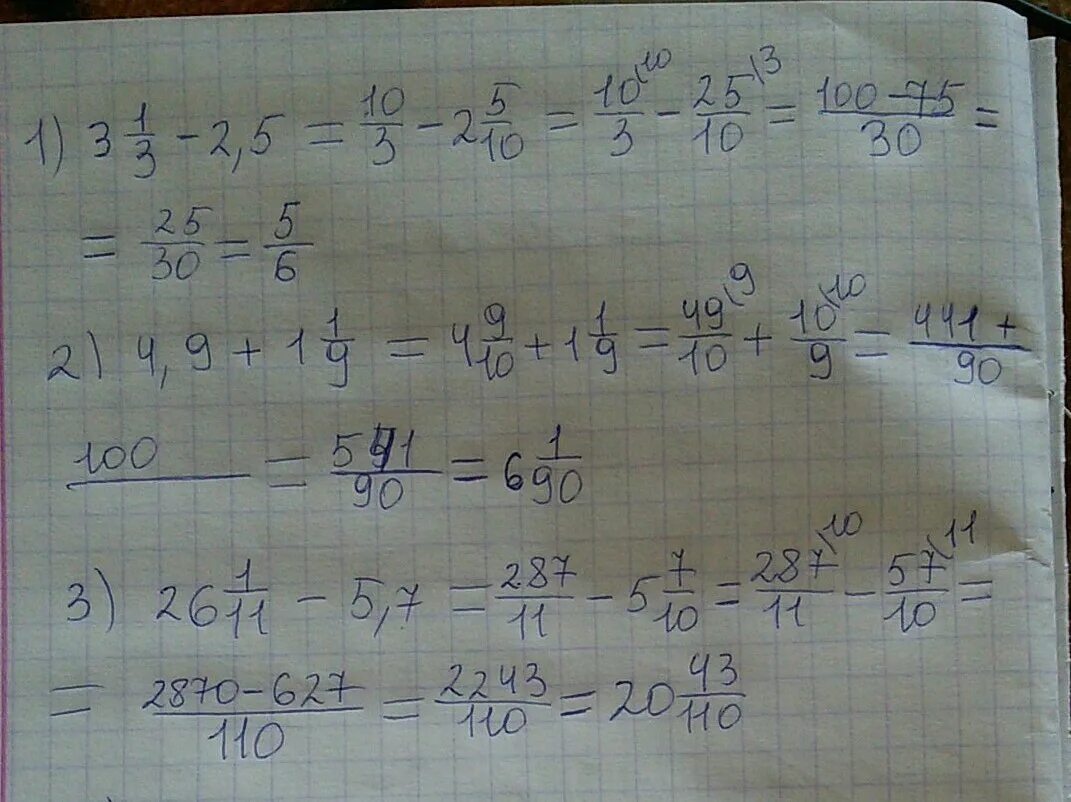 1) 3 1/3 - 2,5 = 10/3 - 2 5/10 = 10\10/3 - 25\3/10 = 100-75/30 =
= 25/30 = 5/6
2) 4,9 + 1 1/9 = 4 9/10 + 1 1/9 = 49\9/10 + 10\10/9 = 441+/90
100 = 541/90 = 6 1/90
3) 26 1/11 - 5,7 = 287/11 - 5 7/10 = 287\10/11 - 57\11/10 =
= 2870-627/110 = 2243/110 = 20 43/110